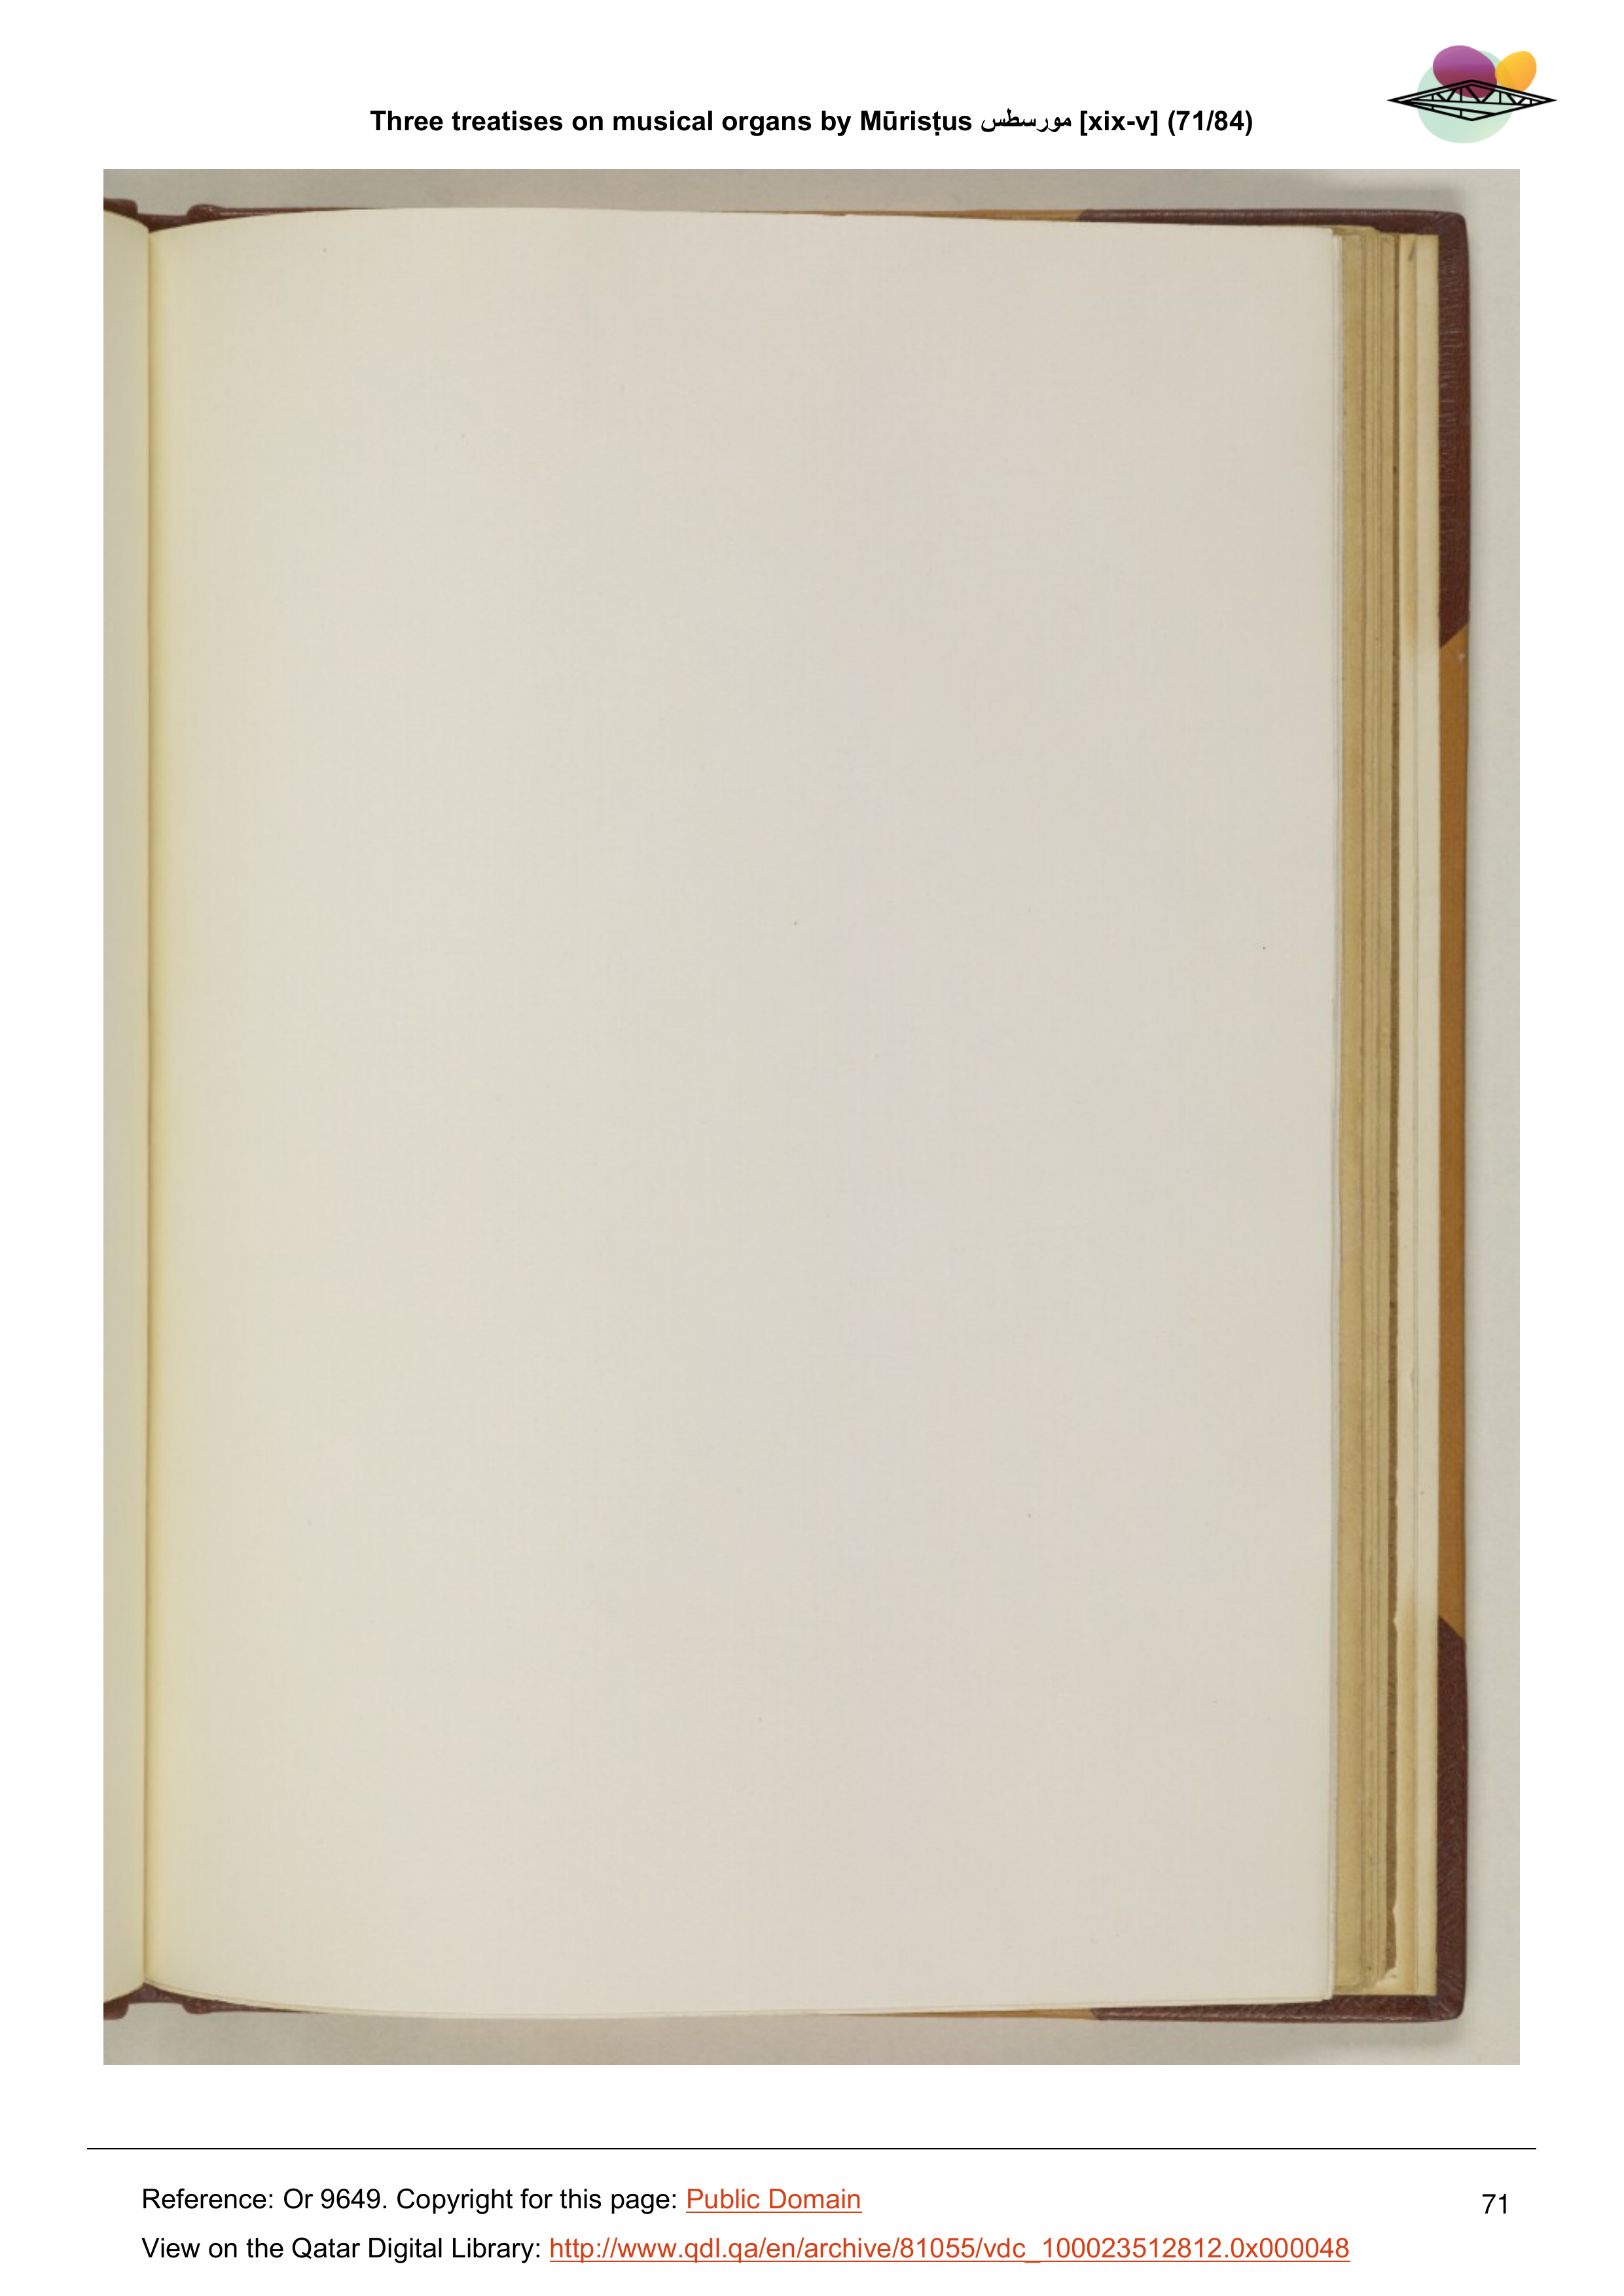 Three treatises on musical organs by Mūrisṭus مورسطس [xix-v] (71/84)
Reference: Or 9649. Copyright for this page: Public Domain
71
View on the Qatar Digital Library: http://www.qdl.qa/en/archive/81055/vdc_100023512812.0x000048